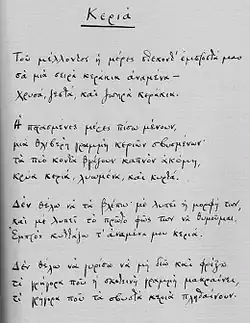 Κεριά
Του μέλλοντος ή μέρες στέκοντ' εμπροστά μας
σα μιά σειρά κεράκια αναμένα —
χρυσά, ζεστά, και ζωηρά κεράκια.
Η περασμένες μέρες πίσω μένουν,
μια θλιβερή γραμμή κεριών σβυσμένων·
τα πιο κοντά βγάζουν καπνόν ακόμη,
κρύα κεριά, λυωμένα, και κυρτά.
Δεν θέλω να τα βλέπω· με λυπεί η μορφή των,
και με λυπεί το πρώτο φως των να θυμούμαι.
Εμπρός κυττάζω τ' αναμένα μου κεριά.
Δεν θέλω να γυρίσω να μη διω και φρίξω
τι γρήγορα που η σκοτεινή γραμμή μακραίνει,
τι γρήγορα που τα σβυστά κεριά πληθαίνουν.